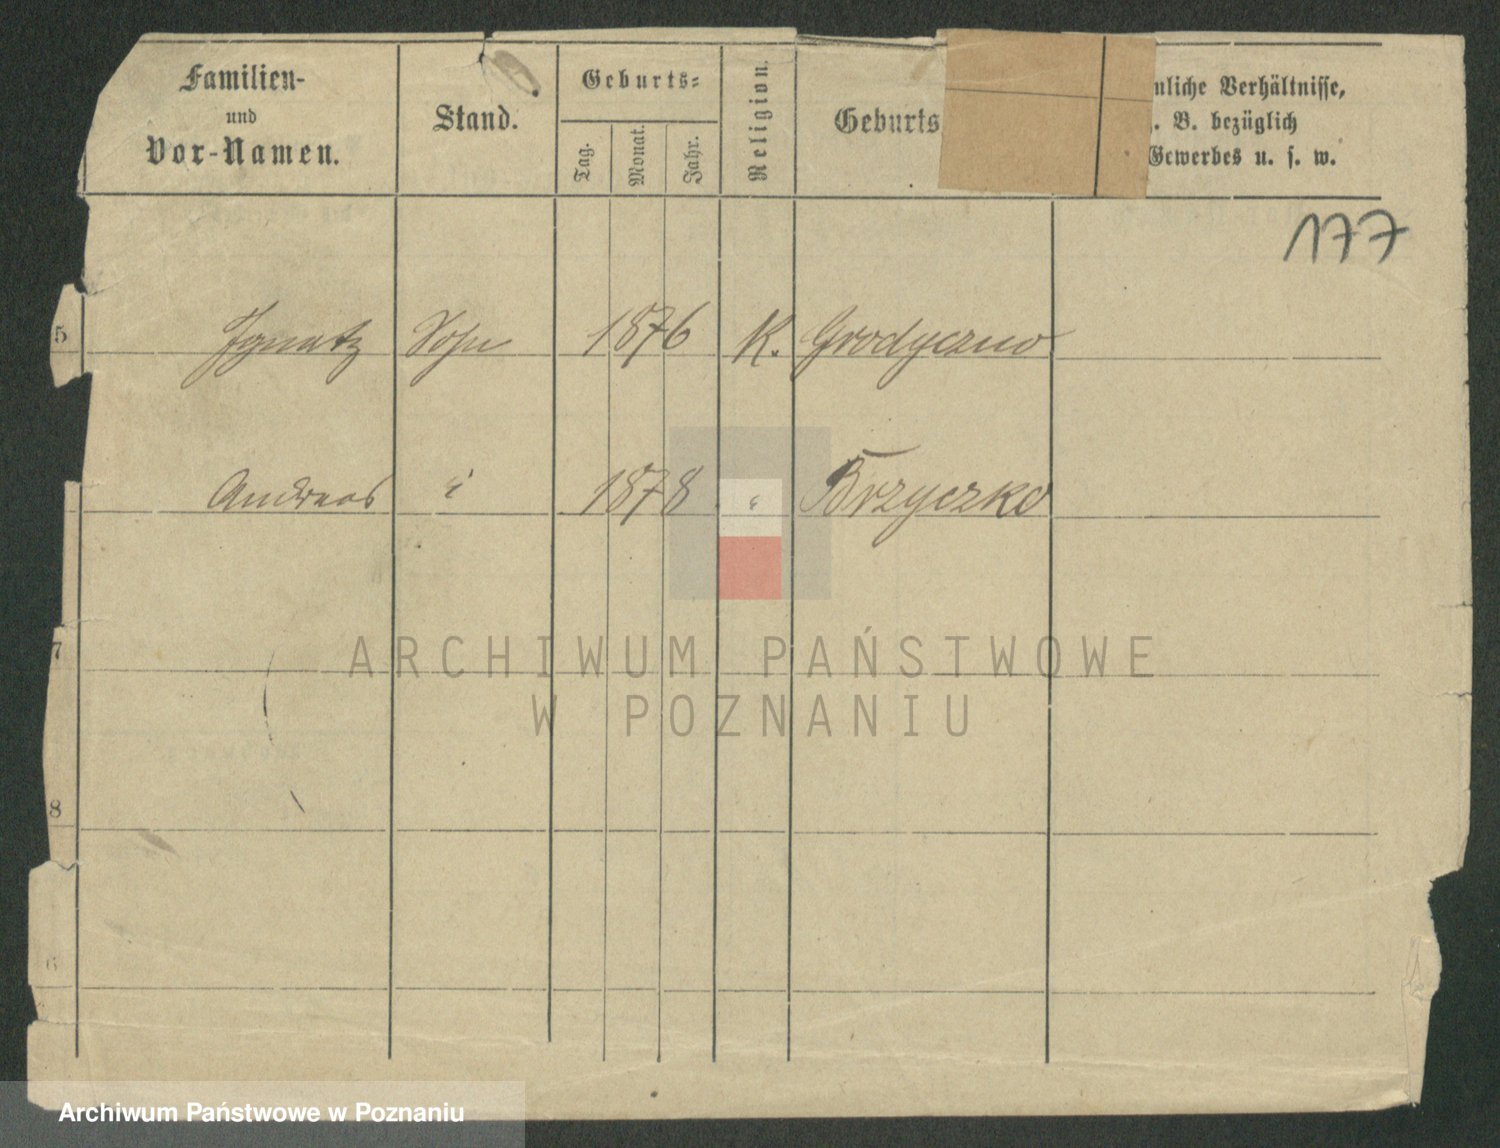 Familien-
und
Vor-Namen.
Stand.
Geburts-
Tag.
Monat.
Jahr.
Religion.
Geburts
nliche Verhältnisse,
. B. bezüglich
Gewerbes u. s. w.
177
5 Ignatz Sohn 1876 K. Grodyczno
Andreas " 1878 " Brzyczko
7
8
ARCHIWUM PAŃSTWOWE
W POZNANIU
Archiwum Państwowe w Poznaniu